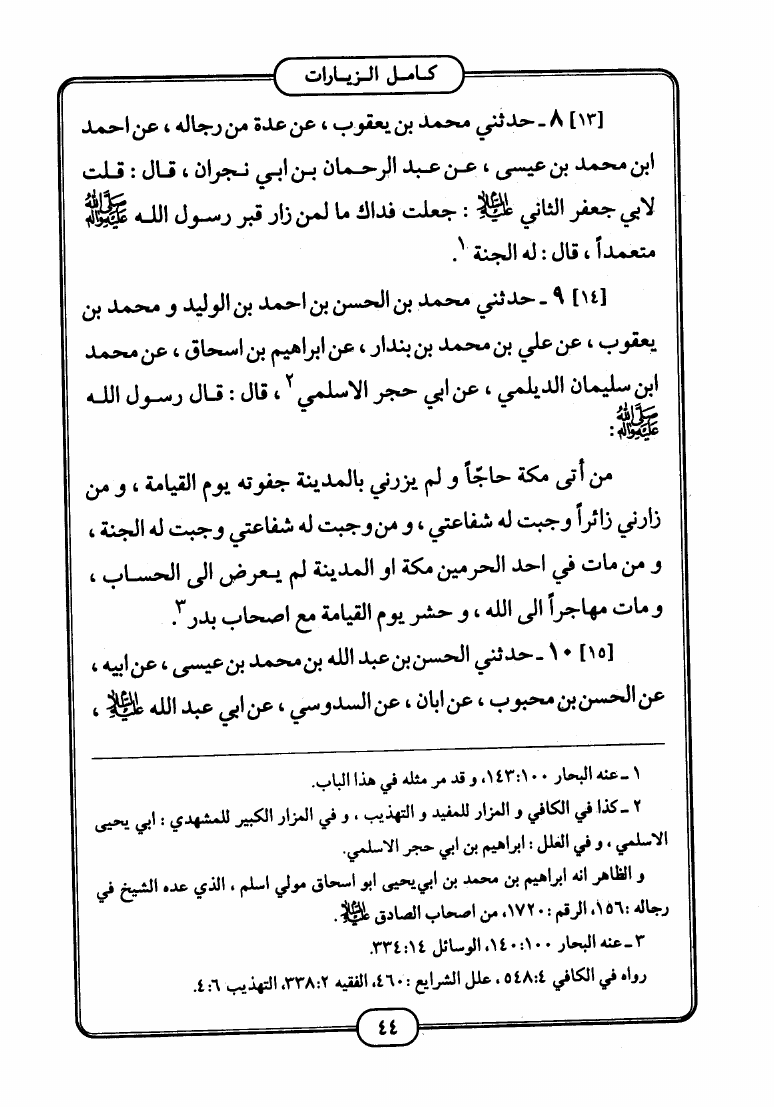 كامل الزيارات
[١٣] ٨ ـ حدثني محمد بن يعقوب ، عن عدة من رجاله ، عن احمد
ابن محمد بن عيسى ، عن عبد الرحمان بن ابي نجران ، قال : قلت
لابي جعفر الثاني عليه السلام : جعلت فداك ما لمن زار قبر رسول الله صلى الله عليه وآله
متعمداً ، قال : له الجنة ١.
[١٤] ٩ ـ حدثني محمد بن الحسن بن احمد بن الوليد و محمد بن
يعقوب ، عن علي بن محمد بن بندار ، عن ابراهيم بن اسحاق ، عن محمد
ابن سليمان الديلمي ، عن ابي حجر الاسلمي ٢ ، قال : قال رسول الله
صلى الله عليه وآله :
من أتى مكة حاجّاً و لم يزرني بالمدينة جفوته يوم القيامة ، و من
زارني زائراً وجبت له شفاعتي ، و من وجبت له شفاعتي وجبت له الجنة ،
و من مات في احد الحرمين مكة او المدينة لم يعرض الى الحساب ،
و مات مهاجراً الى الله ، و حشر يوم القيامة مع اصحاب بدر ٣.
[١٥] ١٠ ـ حدثني الحسن بن عبد الله بن محمد بن عيسى ، عن ابيه ،
عن الحسن بن محبوب ، عن ابان ، عن السدوسي ، عن ابي عبد الله عليه السلام ،
١ ـ عنه البحار ١٠٠:١٤٣، و قد مر مثله في هذا الباب.
٢ ـ كذا في الكافي و المزار للمفيد و التهذيب ، و في المزار الكبير للمشهدي : ابي يحيى
الاسلمي ، و في العلل : ابراهيم بن ابي حجر الاسلمي.
و الظاهر انه ابراهيم بن محمد بن ابي يحيى ابو اسحاق مولي اسلم ، الذي عده الشيخ في
رجاله :١٥٦، الرقم :١٧٢٠، من اصحاب الصادق عليه السلام .
٣ ـ عنه البحار ١٠٠:١٤٠، الوسائل ١٤:٣٣٤.
رواه في الكافي ٤:٥٤٨ ، علل الشرايع :٤٦٠، الفقيه ٢:٣٣٨، التهذيب ٦:٤.
٤٤